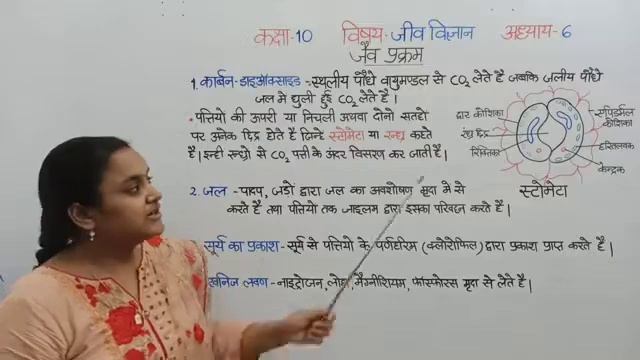 कक्षा-10 विषय-जीव विज्ञान अध्याय-6
जैव प्रक्रम
1. कार्बन-डाइऑक्साइड - स्थलीय पौधे वायुमण्डल से CO₂ लेते है जबकि जलीय पौधे
जल मे घुली हुई CO₂ लेते है।
• पत्तियों की ऊपरी या निचली अथवा दोनो सतहो
पर अनेक छिद्र होते है जिन्हे स्टोमेटा या रन्ध्र कहते
है। इन्ही रन्ध्रो से CO₂ पत्ती के अंदर विसरण कर जाती है।
द्वार कोशिका
रंध्र छिद्र
रिक्तिका
एपिडर्मल
कोशिका
हरितलवक
केन्द्रक
स्टोमेटा
2. जल - पादप, जडो द्वारा जल का अवशोषण मृदा मे से
करते है तथा पत्तियो तक जाइलम द्वारा इसका परिवहन करते है।
सूर्य का प्रकाश - सूर्य से पत्तियो के पर्णहरिम (क्लोरोफिल) द्वारा प्रकाश प्राप्त करते है।
खनिज लवण - नाइट्रोजन, लोहा, मैग्नीशियम, फॉस्फोरस मृदा से लेते है।